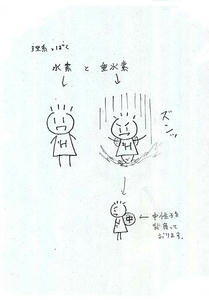 理系っぽく
水素 と 重水素
¹H
²H
ズンッ
中
←中性子を
背負って
おります。